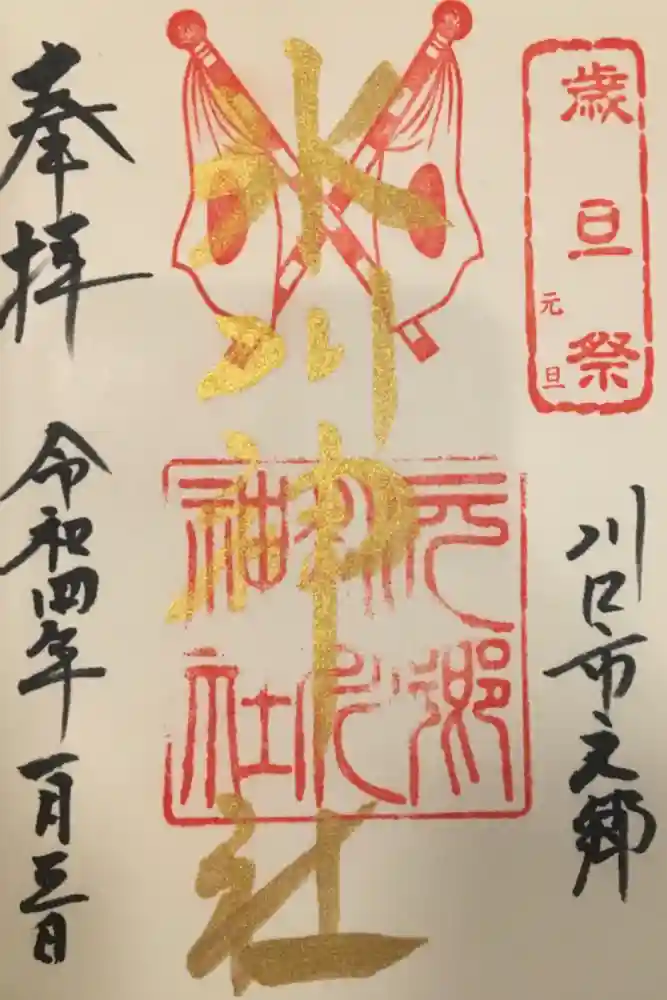 歳旦祭
元旦
川口市元郷
氷川神社
元郷
氷川
神社
奉拝
令和四年一月三日